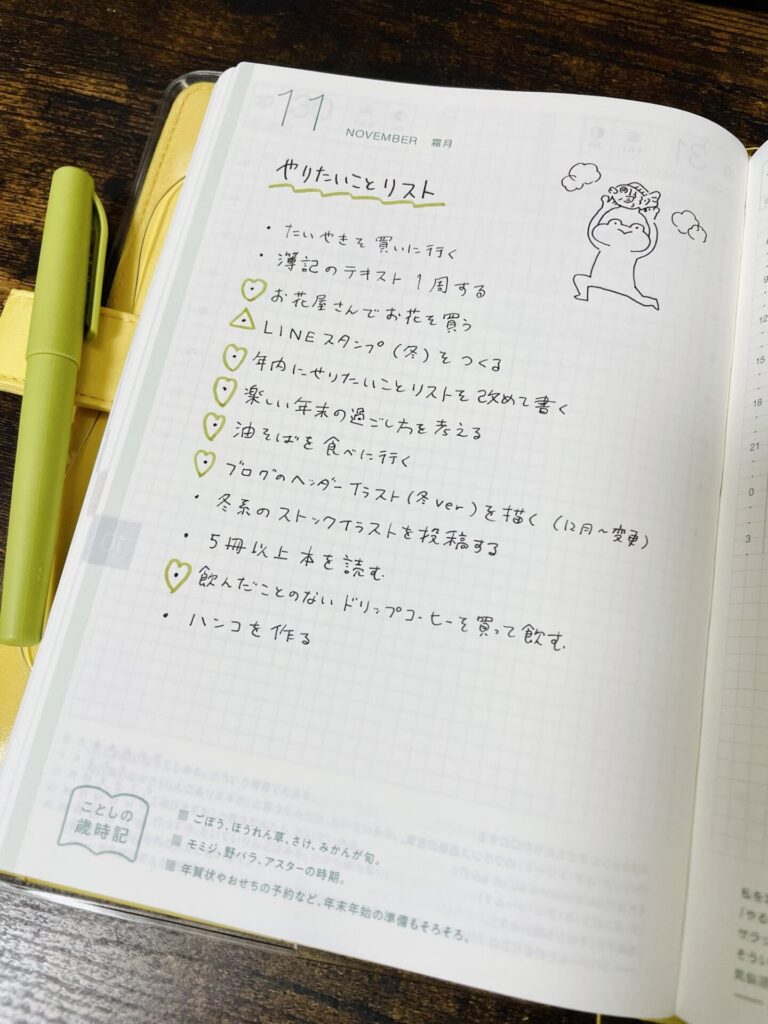 11
NOVEMBER 霜月
やりたいことリスト
・たいやきを買いに行く
・簿記のテキスト1周する
・お花屋さんでお花を買う
・LINEスタンプ(冬)をつくる
・年内にやりたいことリストを改めて書く
・楽しい年末の過ごし方を考える
・油そばを食べに行く
・ブログのヘッダーイラスト(冬ver)を描く(12月〜変更)
・冬系のストックイラストを投稿する
・5冊以上本を読む
・飲んだことのないドリップコーヒーを買って飲む
・ハンコを作る
ことしの
歳時記
ごぼう、ほうれん草、さけ、みかんが旬。
モミジ、野バラ、アスターの時期。
年賀状やおせちの予約など、年末年始の準備もそろそろ。
9
12
15
18
21
0
3
私を
「やる
サラッ
そうい